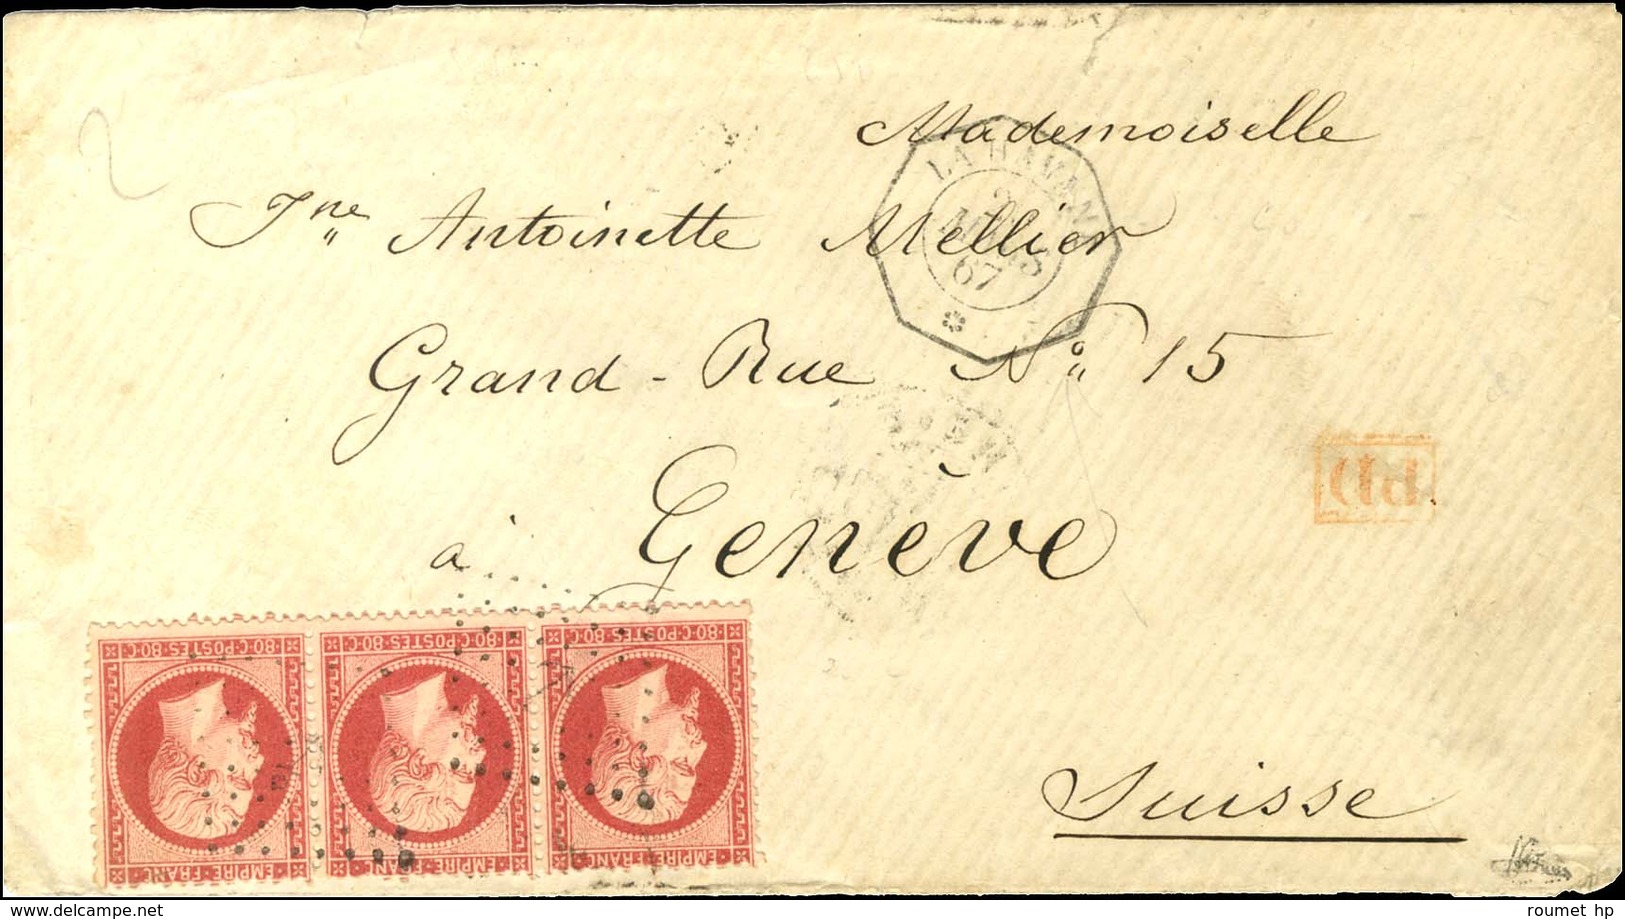 Mademoiselle
Jne Antoinette Mellier
Grand-Rue No 15
à Genève
Suisse
LA HAVANE
2
MARS
67
PD
80·C·POSTES·80·C·
80·C·POSTES·80·C·
80·C·POSTES·80·C·
EMPIRE·FRANC·
EMPIRE·FRANC·
EMPIRE·FRANC·
2
www.delcampe.net
roumet hp